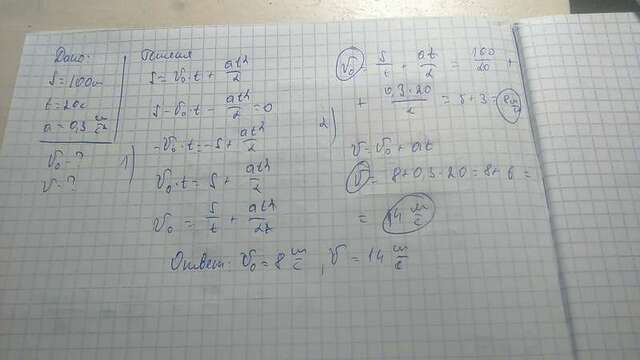 Дано:
S = 100 м
t = 20 с
a = 0,3 м/с
V₀ - ?
V - ?
Решения
1)
S = V₀·t + at²/2
S - V₀·t - at²/2 = 0
-V₀·t = -S + at²/2
V₀·t = S + at²/2
V₀ = S/t + at²/2t
2)
V₀ = S/t + at/2 = 100/20 +
+ 0,3·20/2 = 5 + 3 = 8 м/с
V = V₀ + at
V = 8 + 0,3·20 = 8 + 6 =
= 14 м/с
Ответ: V₀ = 8 м/с, V = 14 м/с